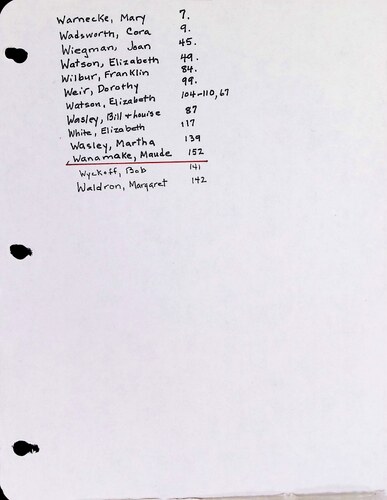 Warnecke, Mary 7.
Wadsworth, Cora 9.
Wiegman, Joan 45.
Watson, Elizabeth 49.
Wilbur, Franklin 84.
Weir, Dorothy 99.
Watson, Elizabeth 104-110, 67
Wasley, Bill & Louise 87
White, Elizabeth 117
Wasley, Martha 139
Wanamake, Maude 152
Wyckoff, Bob 141
Waldron, Margaret 142